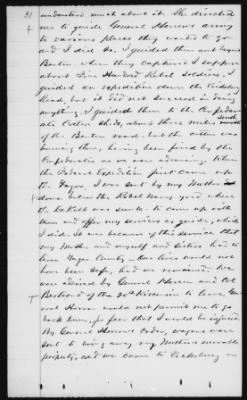 21
understand much about it. She directed
me to guide General Herron's army
to various places they wanted to go
and I did so. I guided them out beyond
Benton when they captured I suppose
about Five Hundred Rebel Soldiers, I
guided an expedition down the Vicksburg
Road, but it did not succeed in doing
anything. I guided them to the Confeder-
ate Cotton Sheds, about three miles south
of the Benton road, but the cotton was
burning then, having been fired by the
Confederates as we were advancing. When
the Federal Expedition first came up
the Yazoo, I was sent by my Mother
down from the Rebel Navy Yard when
the battle was to come up with
them and offer my services as guide, which
I did. It was because of this service that
my Mother and myself and Sisters had to
leave Yazoo County. Our lives would not
have been safe, had we remained. We
were advised by General Herron and Col
of the 20th Wisconsin to leave, Gen-
eral Herron would not permit me to go
back home, for fear that I would be injured.
By General Herron's Order, wagons were
sent to bring away my Mother's movable
property, and we came to Vicksburg on